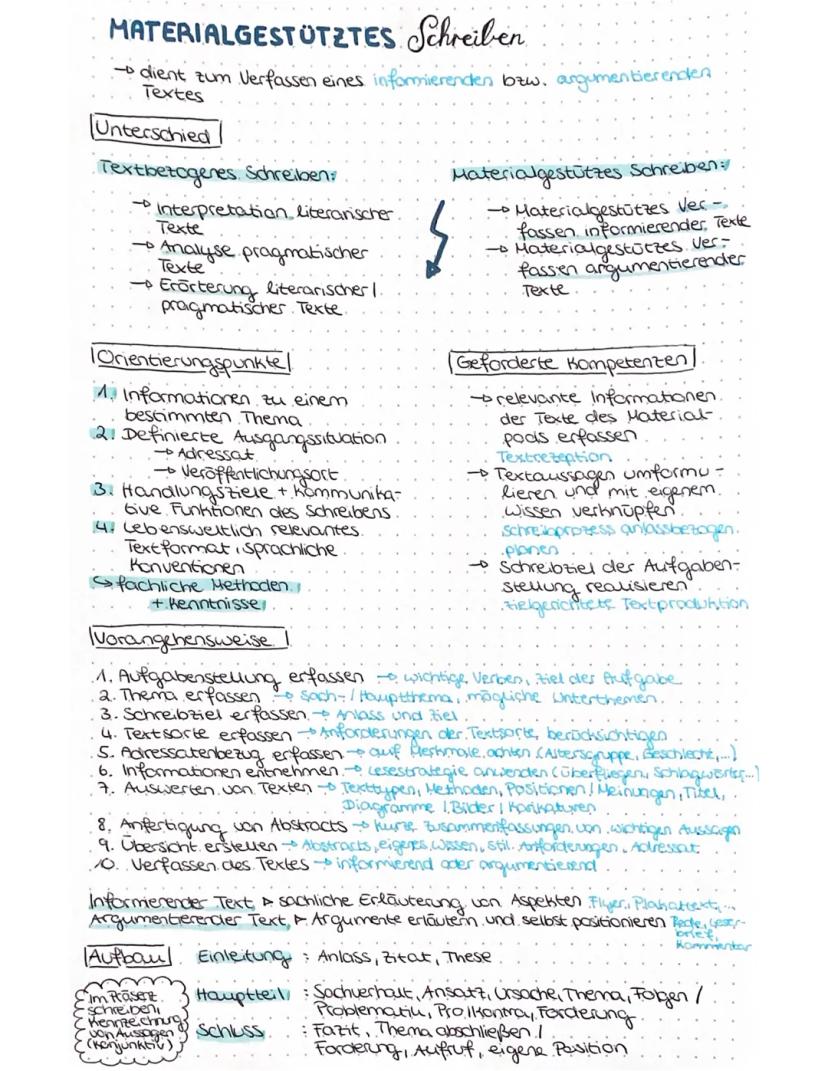 MATERIALGESTÜTZTES Schreiben
→ dient zum Verfassen eines informierenden bzw. argumentierenden
Textes
Unterschied
Textbezogenes Schreiben:
→ Interpretation literarischer
Texte
→ Analyse pragmatischer
Texte
→ Erörterung literarischer /
pragmatischer Texte
Materialgestützes Schreiben:
→ Materialgestützes Ver-
fassen informierender Texte
→ Materialgestützes Ver-
fassen argumentierender
Texte
Orientierungspunkte
1. Informationen zu einem
bestimmten Thema
2. Definierte Ausgangssituation
→ Adressat
→ Veröffentlichungsort
3. Handlungsziele + kommunika-
tive Funktionen des Schreibens
4. Lebensweltlich relevantes
Textformat, sprachliche
Konventionen
↳ fachliche Methoden
+ Kenntnisse
Geforderte Kompetenzen
→ relevante Informationen
der Texte des Material-
pools erfassen
Textrezeption
→ Textaussagen umformu-
lieren und mit eigenem
Wissen verknüpfen
Schreibprozess anlassbezogen
planen
→ Schreibziel der Aufgaben-
stellung realisieren
zielgerichtete Textproduktion
Vorangehensweise
1. Aufgabenstellung erfassen → wichtige Verben, Ziel der Aufgabe
2. Thema erfassen → Sach-/Hauptthema, mögliche Unterthemen
3. Schreibziel erfassen → Anlass und Ziel
4. Textsorte erfassen → Anforderungen der Textsorte berücksichtigen
5. Adressatenbezug erfassen → auf Merkmale achten (Altersgruppe, Geschlecht,...)
6. Informationen entnehmen → Lesestrategie anwenden (überfliegen, Schlagwörter...)
7. Auswerten von Texten → Texttypen, Methoden, Positionen / Meinungen, Titel,
Diagramme / Bilder / Karikaturen
8. Anfertigung von Abstracts → kurze Zusammenfassungen von wichtigen Aussagen
9. Übersicht erstellen → Abstracts, eigenes Wissen, stil. Anforderungen, Adressat
10. Verfassen des Textes → informierend oder argumentierend
Informierender Text ▸ sachliche Erläuterung von Aspekten Flyer, Plakattext,...
Argumentierender Text ▸ Argumente erläutern und selbst positionieren Rede, Leser-
brief,
Kommentar
Aufbau
Einleitung : Anlass, Zitat, These
Hauptteil : Sachverhalt, Ansatz, Ursache, Thema, Folgen /
Problematik, Pro/Kontra, Forderung
Schluss : Fazit, Thema abschließen /
Forderung, Aufruf, eigene Position
im Präsens
schreiben,
Kennzeichnung
von Aussagen
(Konjunktiv)